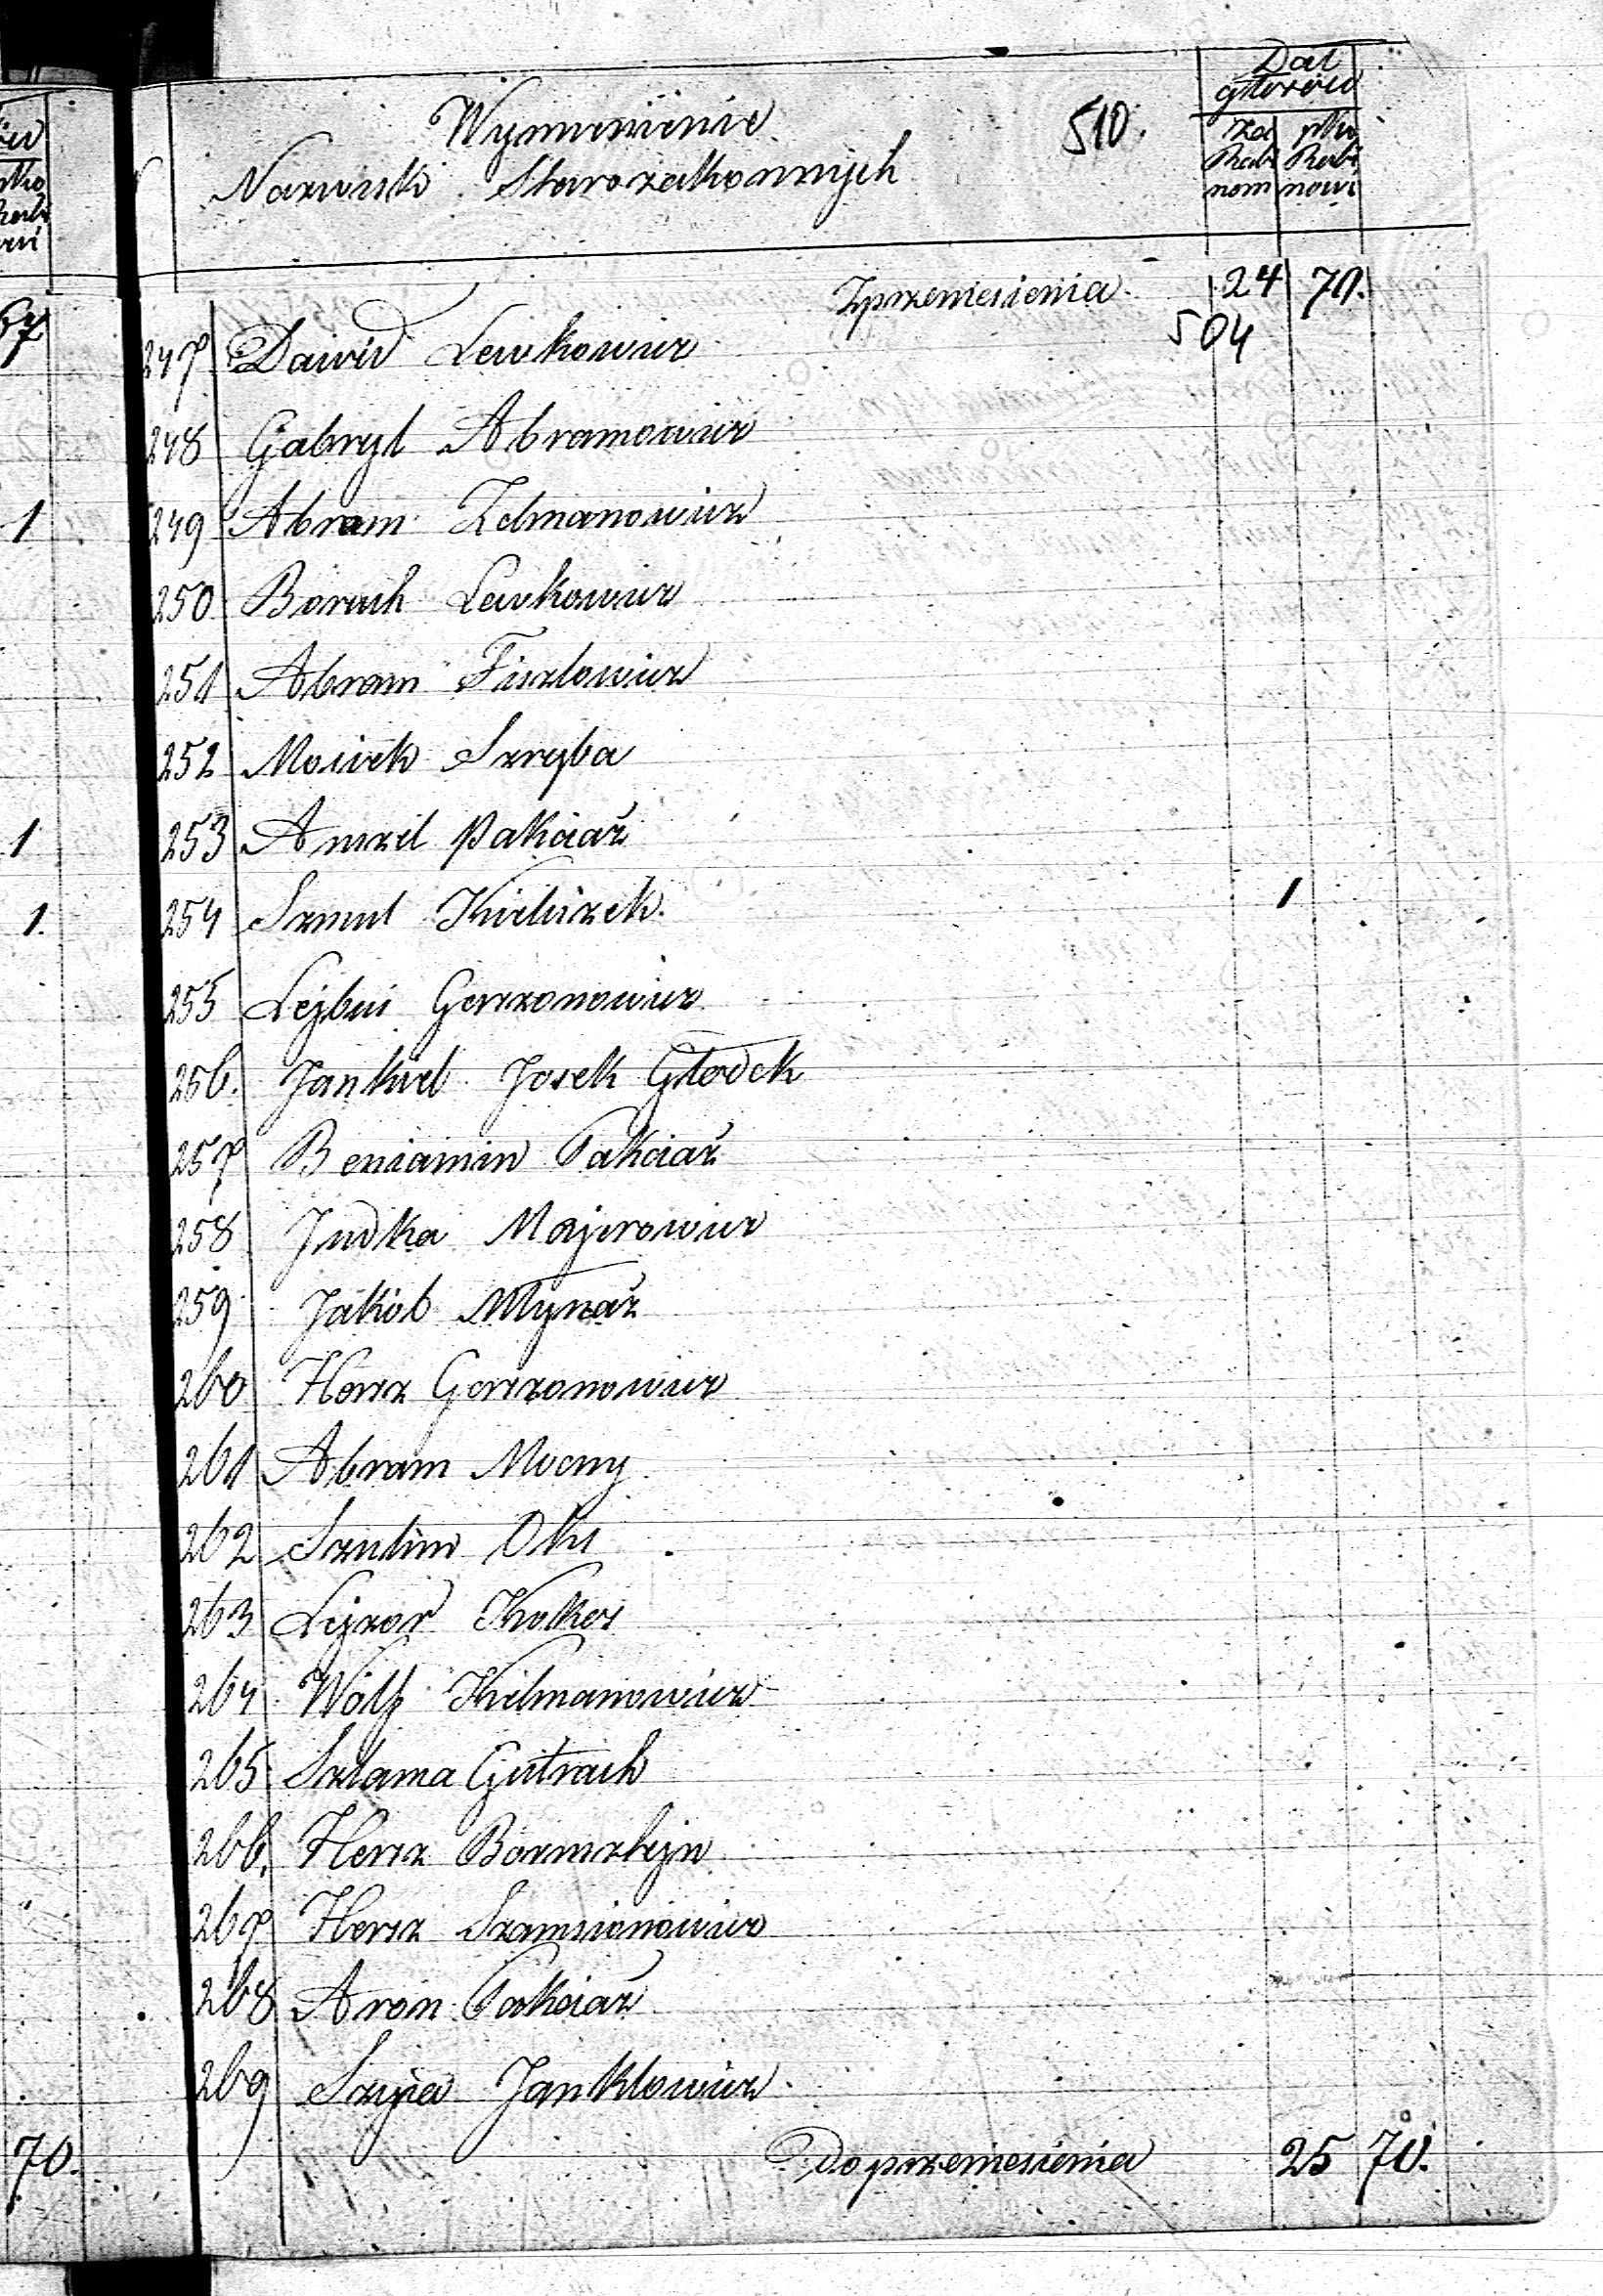 Wymienienie
Nazwisk Starozakonnych
510.
Dał
głosów
Za
Rabi
nom
ptko
Rabi
nowi
Z przeniesienia 24 70.
504
247 Dawid Lewkowicz
248 Gabryl Abramowicz
249 Abram Zelmanowicz
250 Boruch Lewkowicz
251 Abram Fiszlowicz
252 Mosiek Szryba
253 Anszel Pakciaż
254 Szmul Kieliszek. 1
255 Lejbuś Gerszonowicz
256. Jankiel Josek Głodek
257 Beniamin Pakciaż
258 Judka Majerowicz
259 Jakób Młynaż
260 Hersz Gerszonowicz
261 Abram Mocny
262 Szulim Oks
263 Lejzor Kokos
264 Wolf Kielmanowicz
265 Szlama Gutrach
266. Hersz Bormsztejn
267 Hersz Szamsionowicz
268 Aron Pakciaż
269 Szyia Janklowicz
Do przeniesienia 25 70.
67
1
1
1.
70.